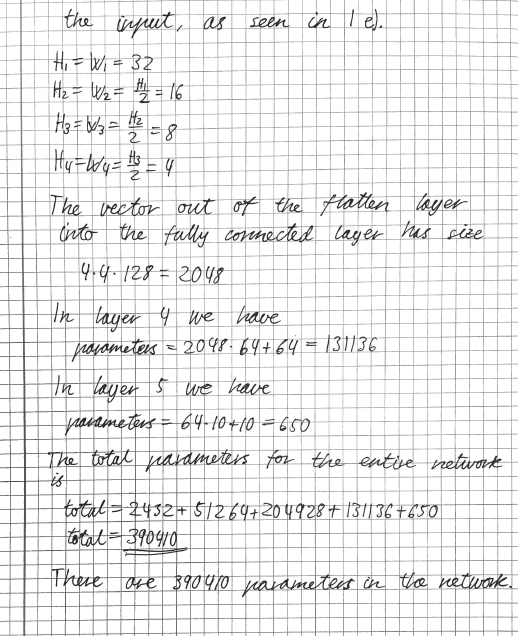 the input, as seen in 1 e).
H₁ = W₁ = 32
H₂ = W₂ = H₁/2 = 16
H₃ = W₃ = H₂/2 = 8
H₄ = W₄ = H₃/2 = 4
The vector out of the flatten layer
into the fully connected layer has size
4·4·128 = 2048
In layer 4 we have
parameters = 2048·64+64 = 131136
In layer 5 we have
parameters = 64·10+10 = 650
The total parameters for the entire network
is
total = 2432 + 51264 + 204928 + 131136 + 650
total = 390410
There are 390410 parameters in the network.